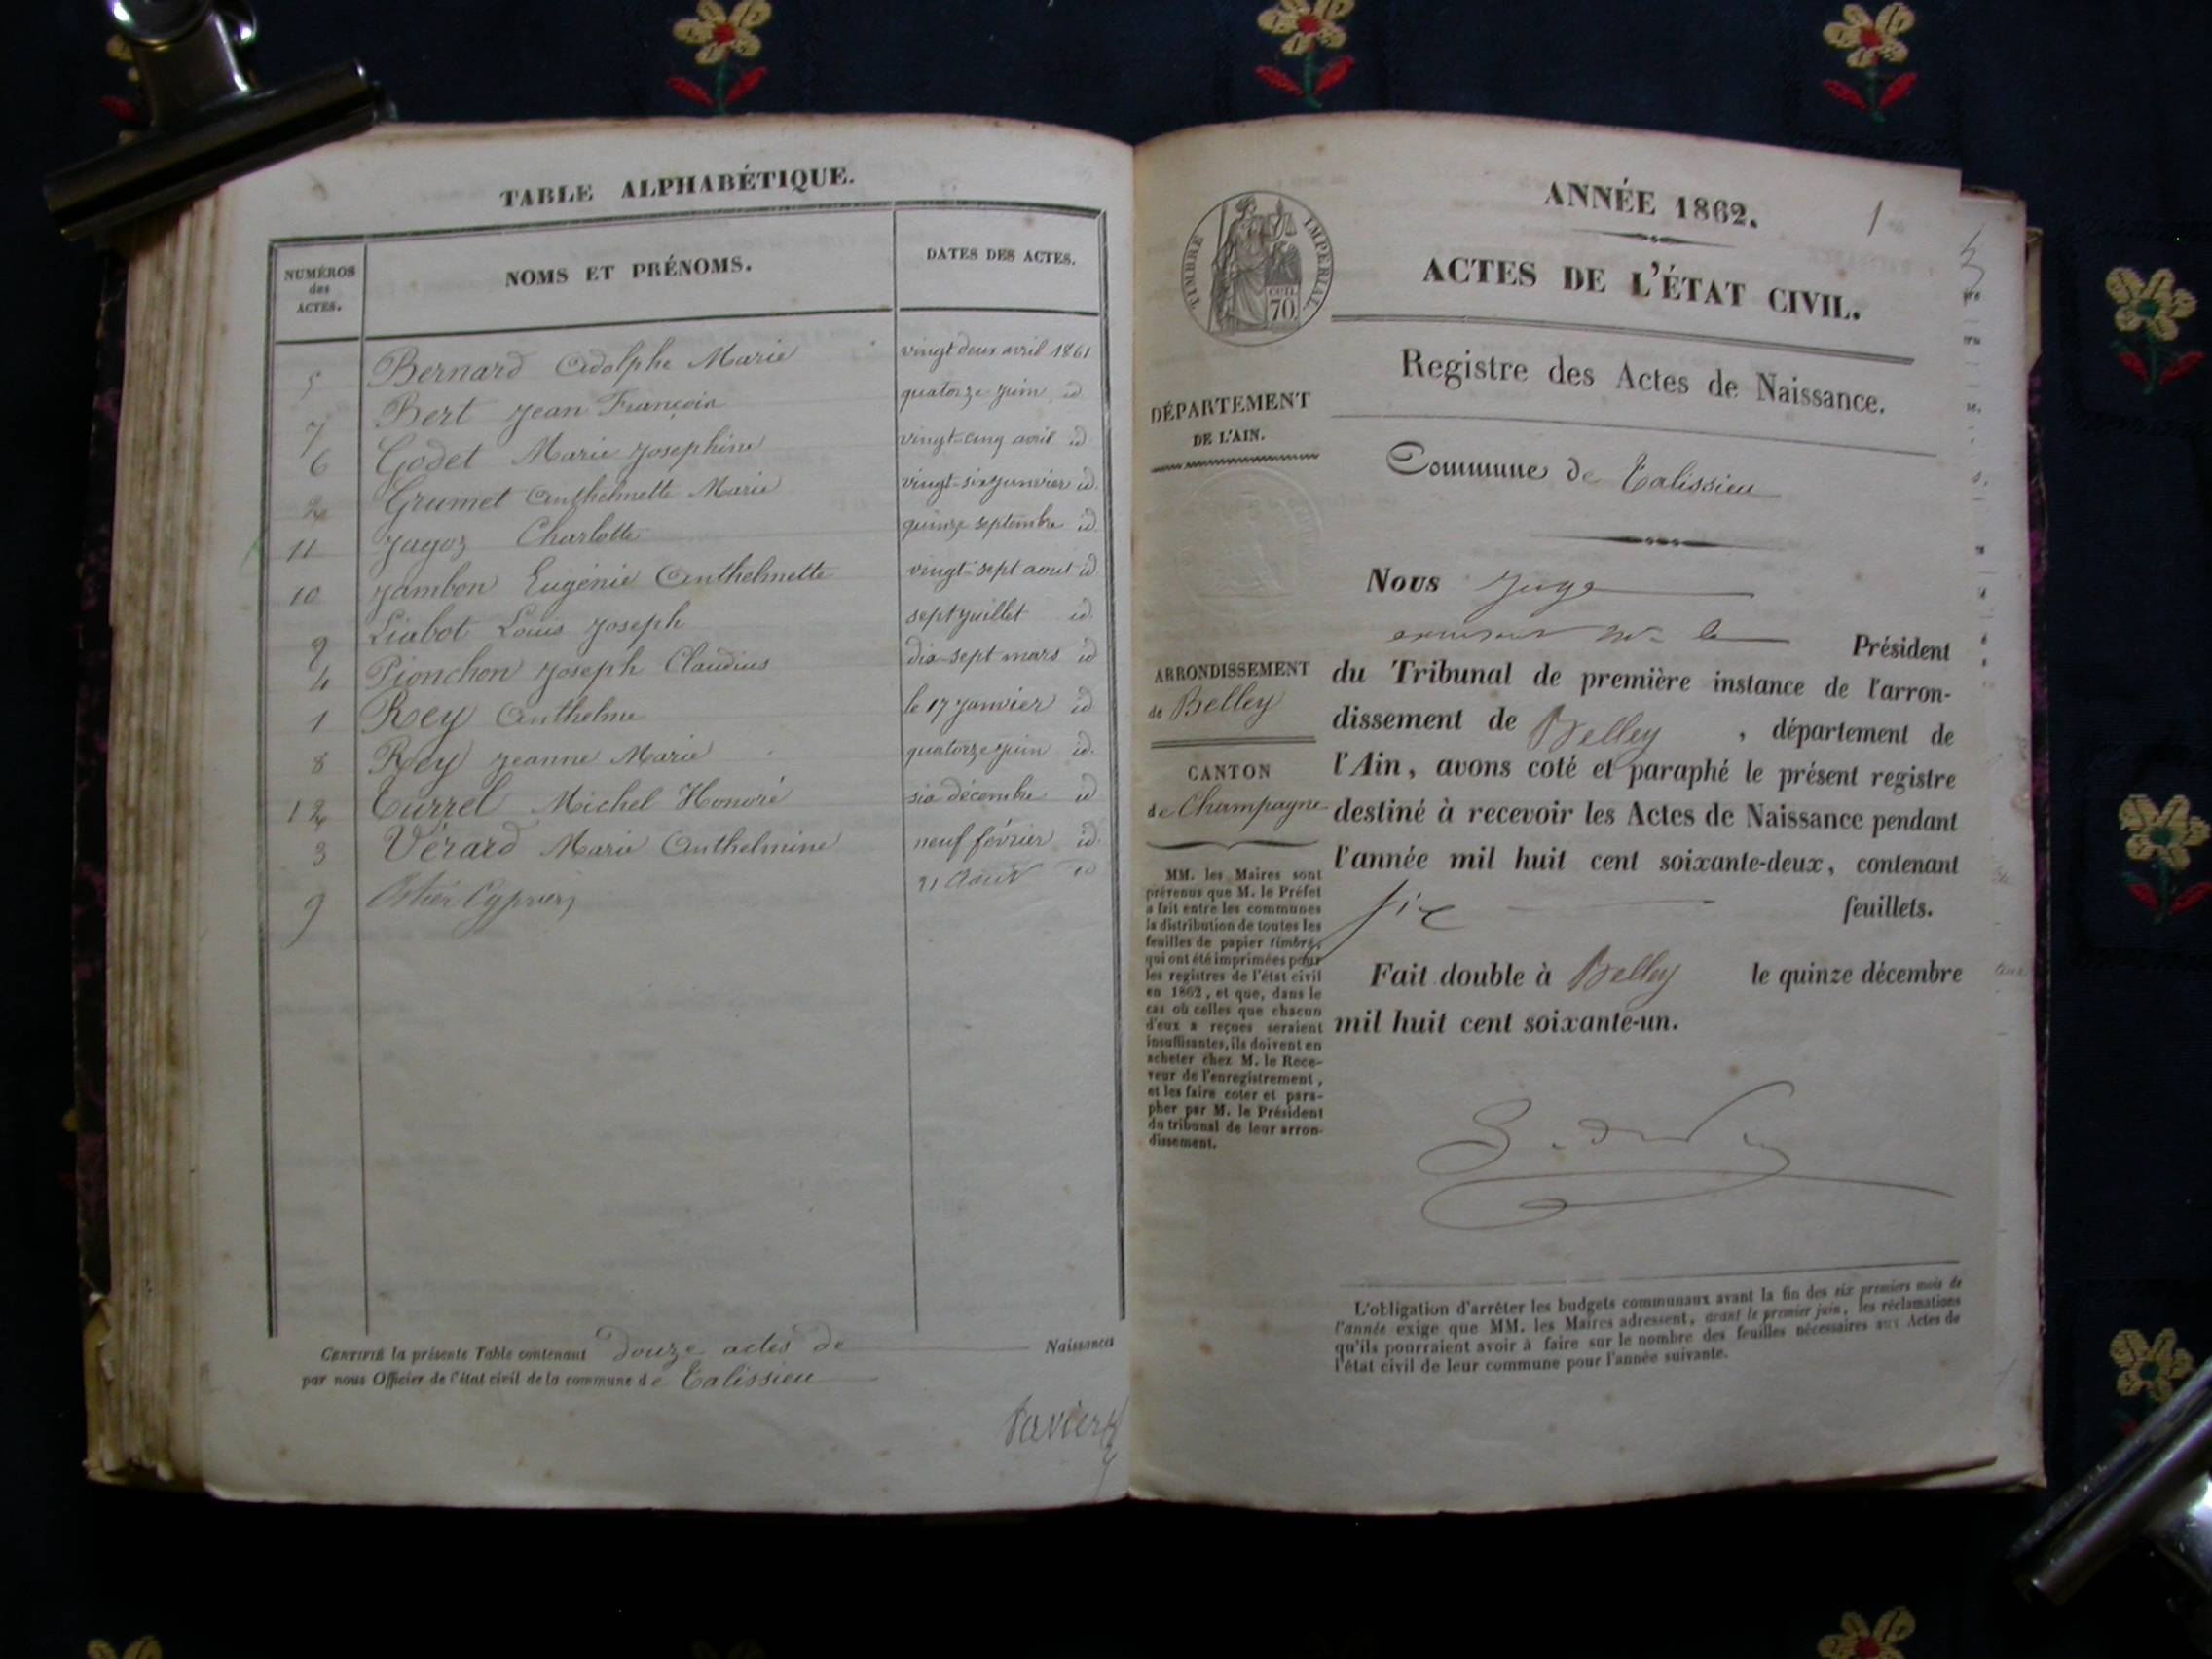 TABLE ALPHABÉTIQUE.
NUMÉROS des ACTES.
NOMS ET PRÉNOMS.
DATES DES ACTES.
5 Bernard Adolphe Marie vingt deux avril 1861
7 Bert Jean François quatorze juin id
6 Godet Marie Josephine vingt-cinq avril id
2 Grumet Anthelmette Marie vingt-six janvier id.
11 Jagoz Charlotte quinze septembre id.
10 Jambon Eugénie Anthelmette vingt-sept aout id
9 Liabot Louis Joseph sept juillet id.
4 Pionchon Joseph Claudius dix-sept mars id
1 Rey Anthelme le 17 Janvier id
8 Rey Jeanne Marie quatorze juin id.
12 Turrel Michel Honoré six décembre id
3 Vérard Marie Anthelmine neuf février id.
9 Cyprien 21 Aout id
CERTIFIÉ la présente Table contenant douze actes de Naissances
par nous Officier de l'état civil de la commune de Talissieu
Tavier
ANNÉE 1862.
1
TIMBRE IMPERIAL.
CENT. 70.
ACTES DE L'ÉTAT CIVIL.
Registre des Actes de Naissance.
DÉPARTEMENT
DE L'AIN.
Commune de Talissieu
Nous Juge
Mr le Président
ARRONDISSEMENT
de Belley
CANTON
de Champagne
du Tribunal de première instance de l'arron-
dissement de Belley, département de
l'Ain, avons coté et paraphé le présent registre
destiné à recevoir les Actes de Naissance pendant
l'année mil huit cent soixante-deux, contenant
six feuillets.
Fait double à Belley le quinze décembre
mil huit cent soixante-un.
MM. les Maires sont
prévenus que M. le Préfet
a fait entre les communes
la distribution de toutes les
feuilles de papier timbré,
qui ont été imprimées pour
les registres de l'état civil
en 1862, et que, dans le
cas où celles que chacun
d'eux a reçues seraient
insuffisantes, ils doivent en
acheter chez M. le Rece-
veur de l'enregistrement,
et les faire coter et para-
pher par M. le Président
du tribunal de leur arron-
dissement.
L'obligation d'arrêter les budgets communaux avant la fin des six premiers mois de
l'année exige que MM. les Maires adressent, avant le premier juin, les réclamations
qu'ils pourraient avoir à faire sur le nombre des feuilles nécessaires aux Actes de
l'état civil de leur commune pour l'année suivante.